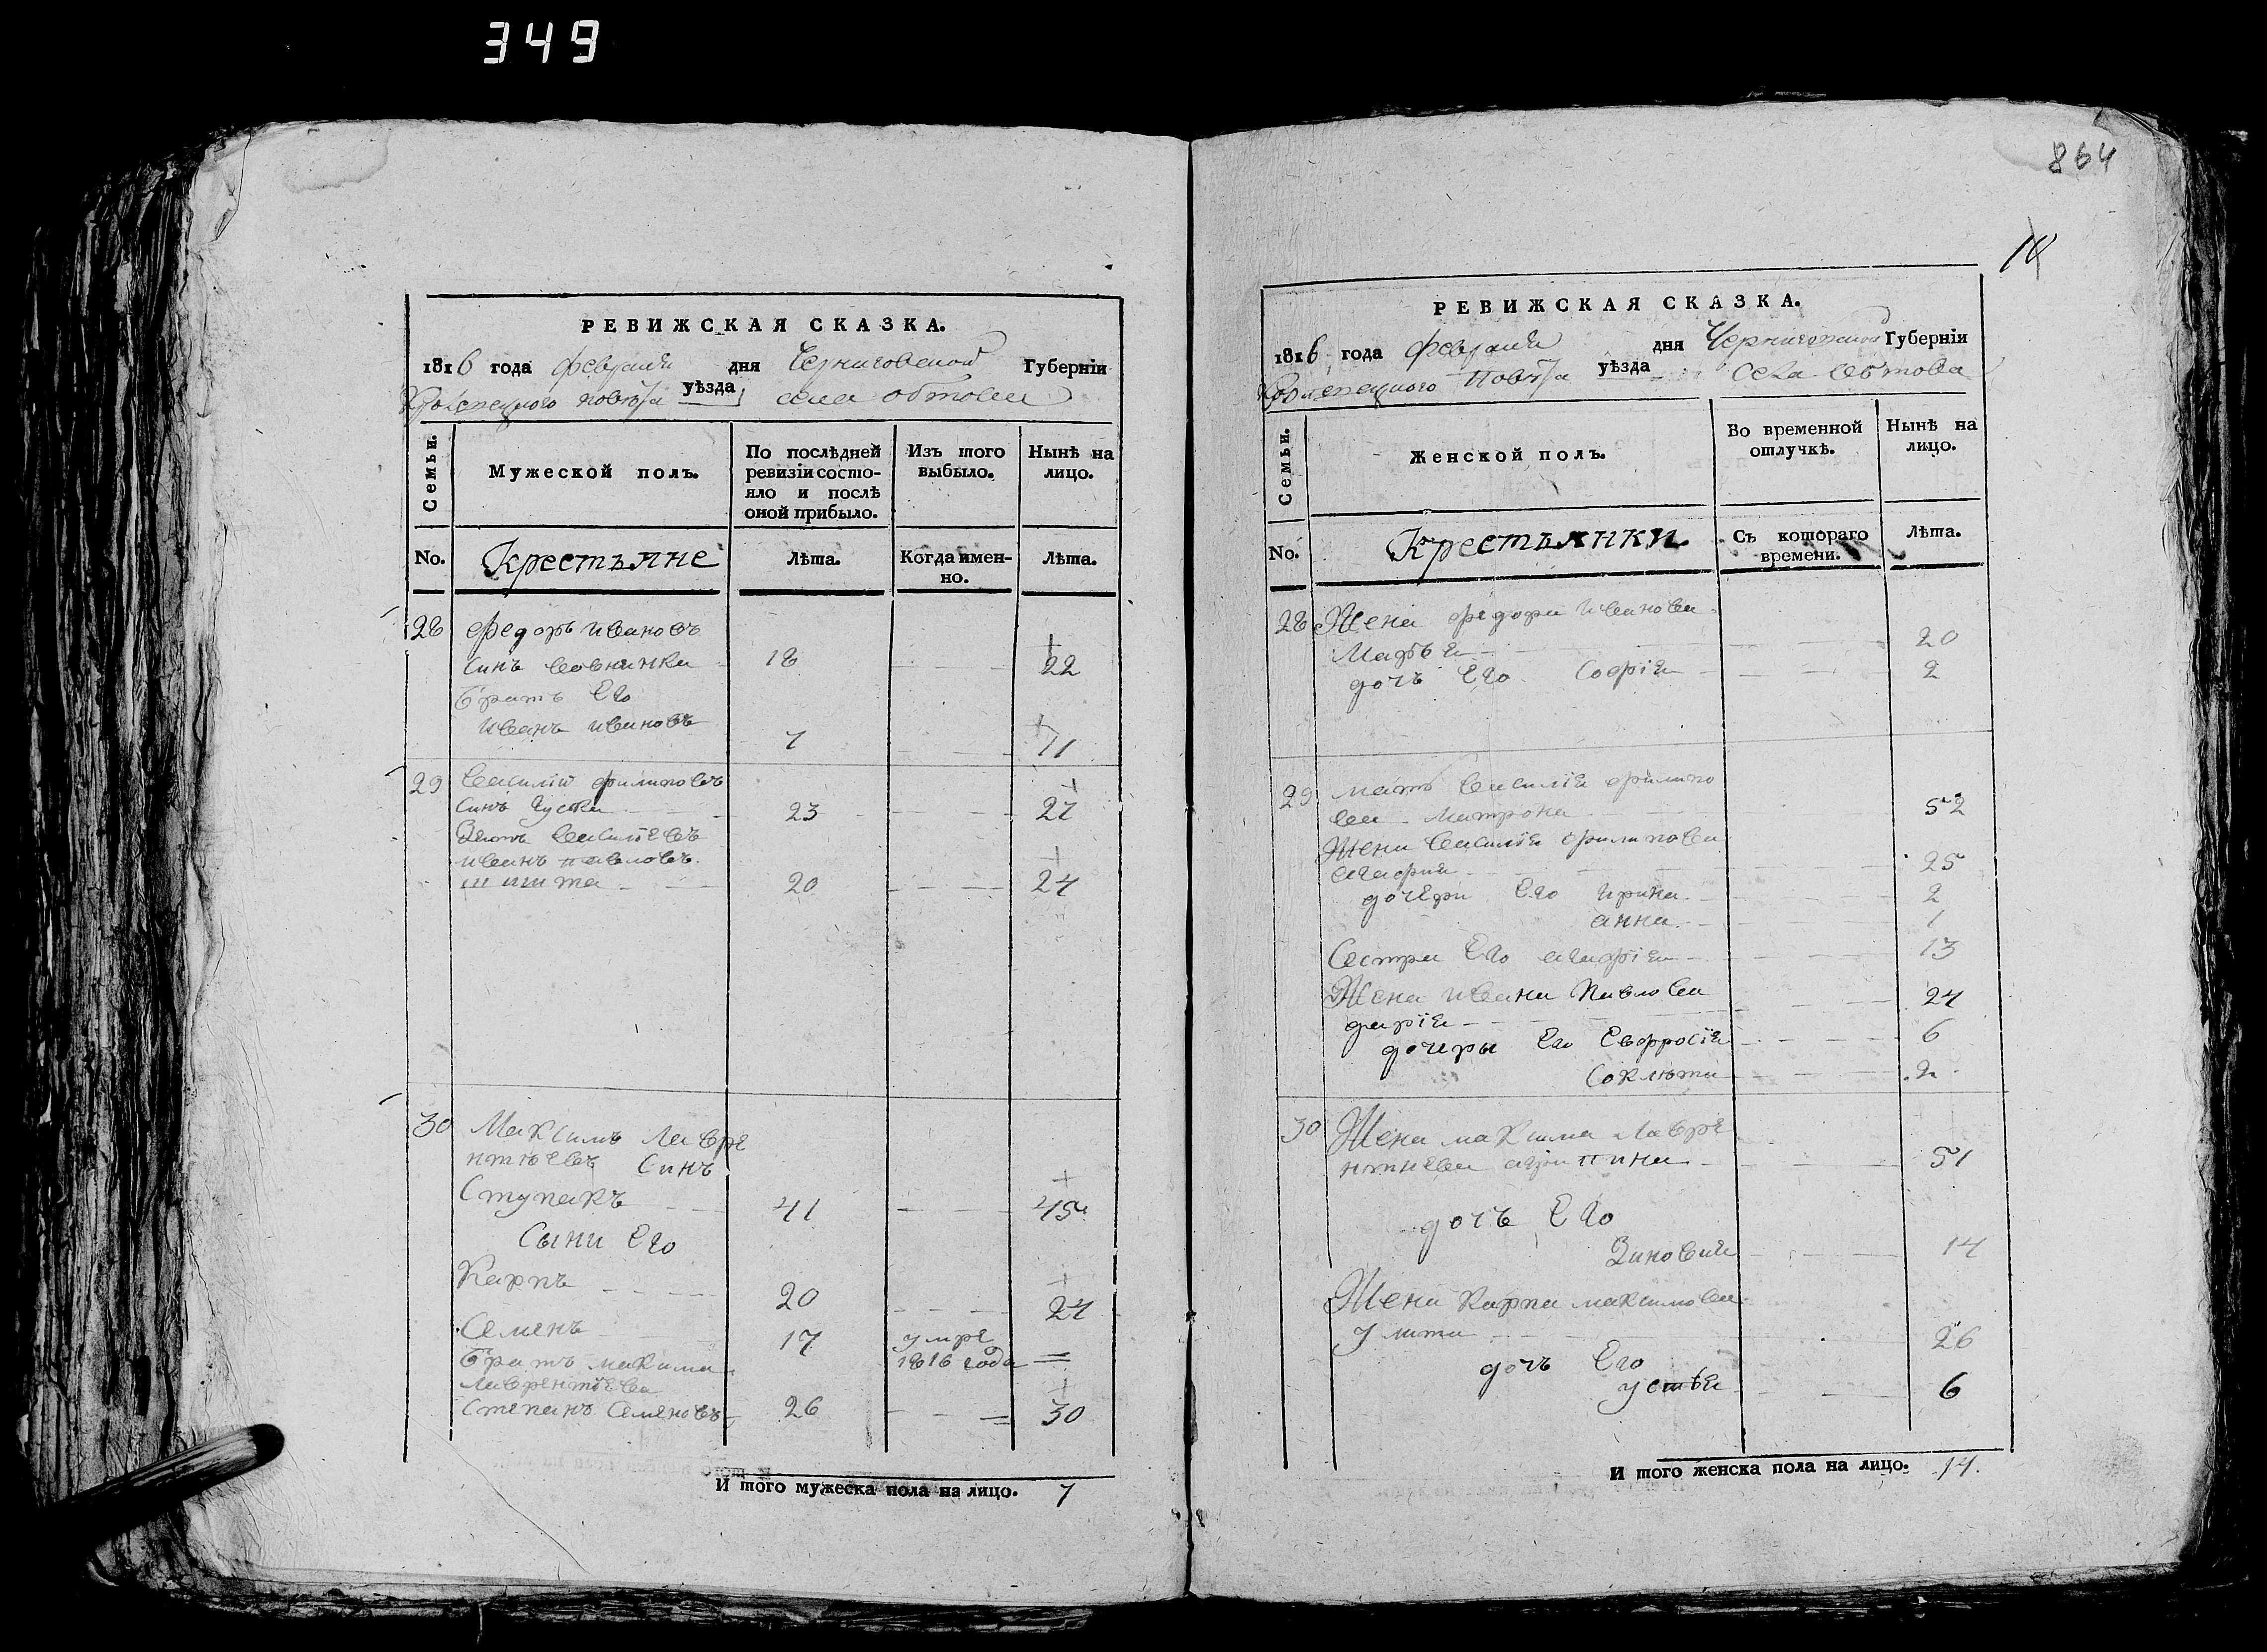 349
864
РЕВИЖСКАЯ СКАЗКА.
1816 года февраля дня Черниговской Губерніи
Кролевецкого повѣта уѣзда села обтова
Семьи.
Мужеской полъ.
По послѣдней ревизіи состояло и послѣ оной прибыло.
Изъ того выбыло.
Нынѣ на лицо.
No. Крестьяне Лѣта. Когда именно. Лѣта.
28 Федоръ Ивановъ
синъ 18 22
братъ Его
иванъ ивановъ 7 11
29 Василій филиповъ
синъ Гуска 23 27
Зять василіевъ
иванъ павловъ
20 24
30 Максимъ Лавре
нтіевъ Синъ
Ступакъ 41 45
Сыни Его
Карпъ 20 24
Семенъ 17 умре 1816 года
братъ максима
лаврентіева
степанъ Семеновъ 26 30
И того мужеска пола на лицо. 7
РЕВИЖСКАЯ СКАЗКА.
1816 года февраля дня Черниговской Губерніи
Кролевецкого повѣта уѣзда села Обтова
Семьи.
Женской полъ.
Во временной отлучкѣ.
Нынѣ на лицо.
No. Крестьянки Съ котораго времени. Лѣта.
28 Жена федора иванова
Марья 20
дочь Его Софія 2
29 мать василія филипо
ва Матрона 52
Жена василія филипова
агафия 25
дочери Его ирина 2
анна 1
Сестра Его агафія 13
Жена ивана павлова 24
дарія
дочеры Его Евфросія 6
Соклѣта 2
30 Жена максима лавре
нтиева агрипина 51
дочь Его
Зиновия 14
Жена карпа максимова
улита 26
дочь Его
устья 6
И того женска пола на лицо. 14.